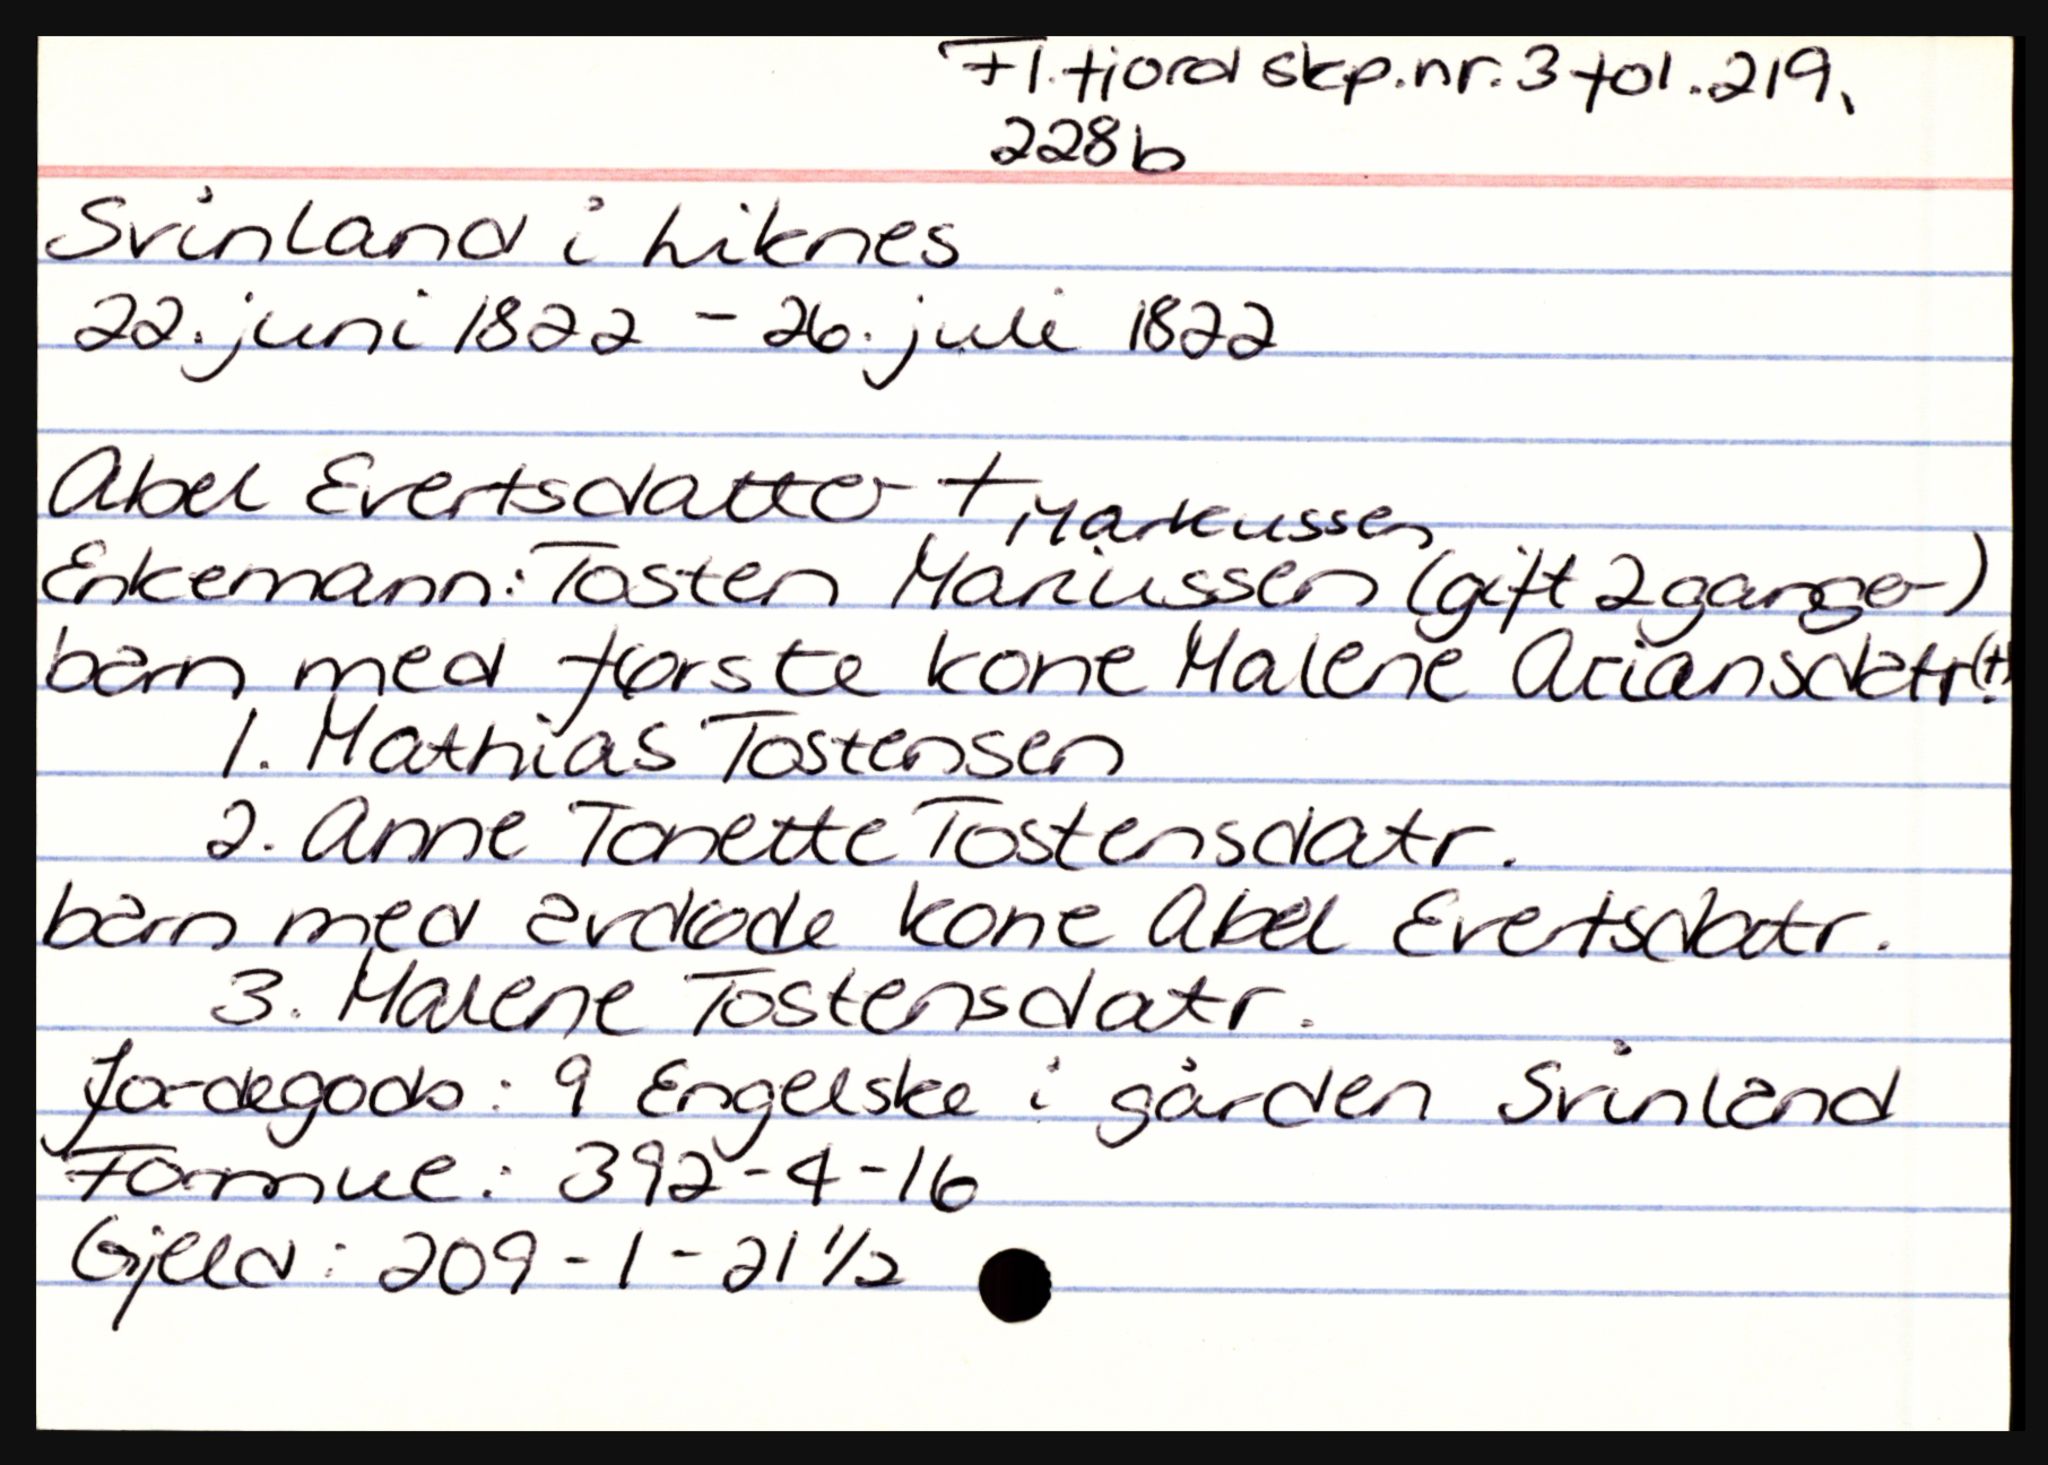 Fl.fjord skp.nr.3 fol.219,
228b
Svinland i Liknes
22. juni 1822 - 26. juli 1822
Abel Evertsdatter +
Markussen
Enkemann: Tosten Mariussen (gift 2 ganger)
barn med første kone Malene Ariansdatr(+)
1. Mathias Tostensen
2. Anne Tonette Tostensdatr.
barn med avdøde kone Abel Evertsdatr.
3. Malene Tostensdatr.
Jordegods: 9 Engelske i gården Svinland
Formue: 392-4-16
Gjeld: 209-1-21 1/2